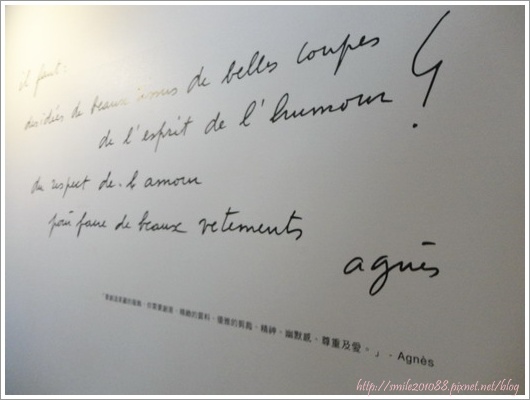 il faut:
des idées de beaux tissus de belles coupes
de l'esprit de l'humour !
du respect de l'amour
pour faire de beaux vetements
agnès
精緻的質料、優雅的剪裁、精神、幽默感、尊重及愛。」- Agnès
http://smile201088.pixnet.net/blog